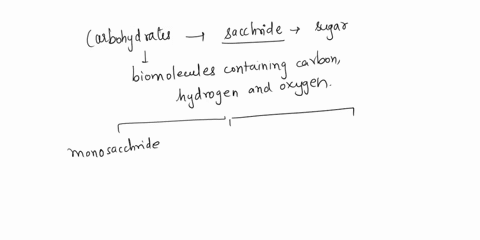 Carbohydrates → sacchride → sugar
biomolecules containing carbon,
hydrogen and oxygen.
monosacchride